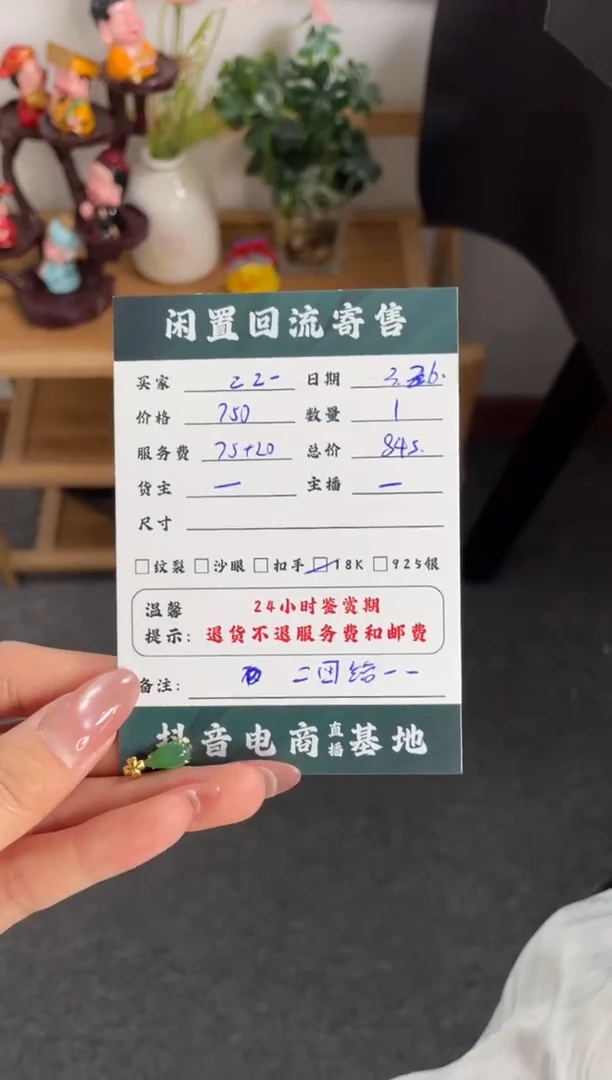 闲置回流寄售
买家 22- 日期 3.26.
价格 750 数量 1
服务费 75+20 总价 845.
货主 一 主播 一
尺寸
纹裂 沙眼 扣手 18K 925银
温馨 24小时鉴赏期
提示: 退货不退服务费和邮费
备注: 二回给一一
抖音电商直播基地